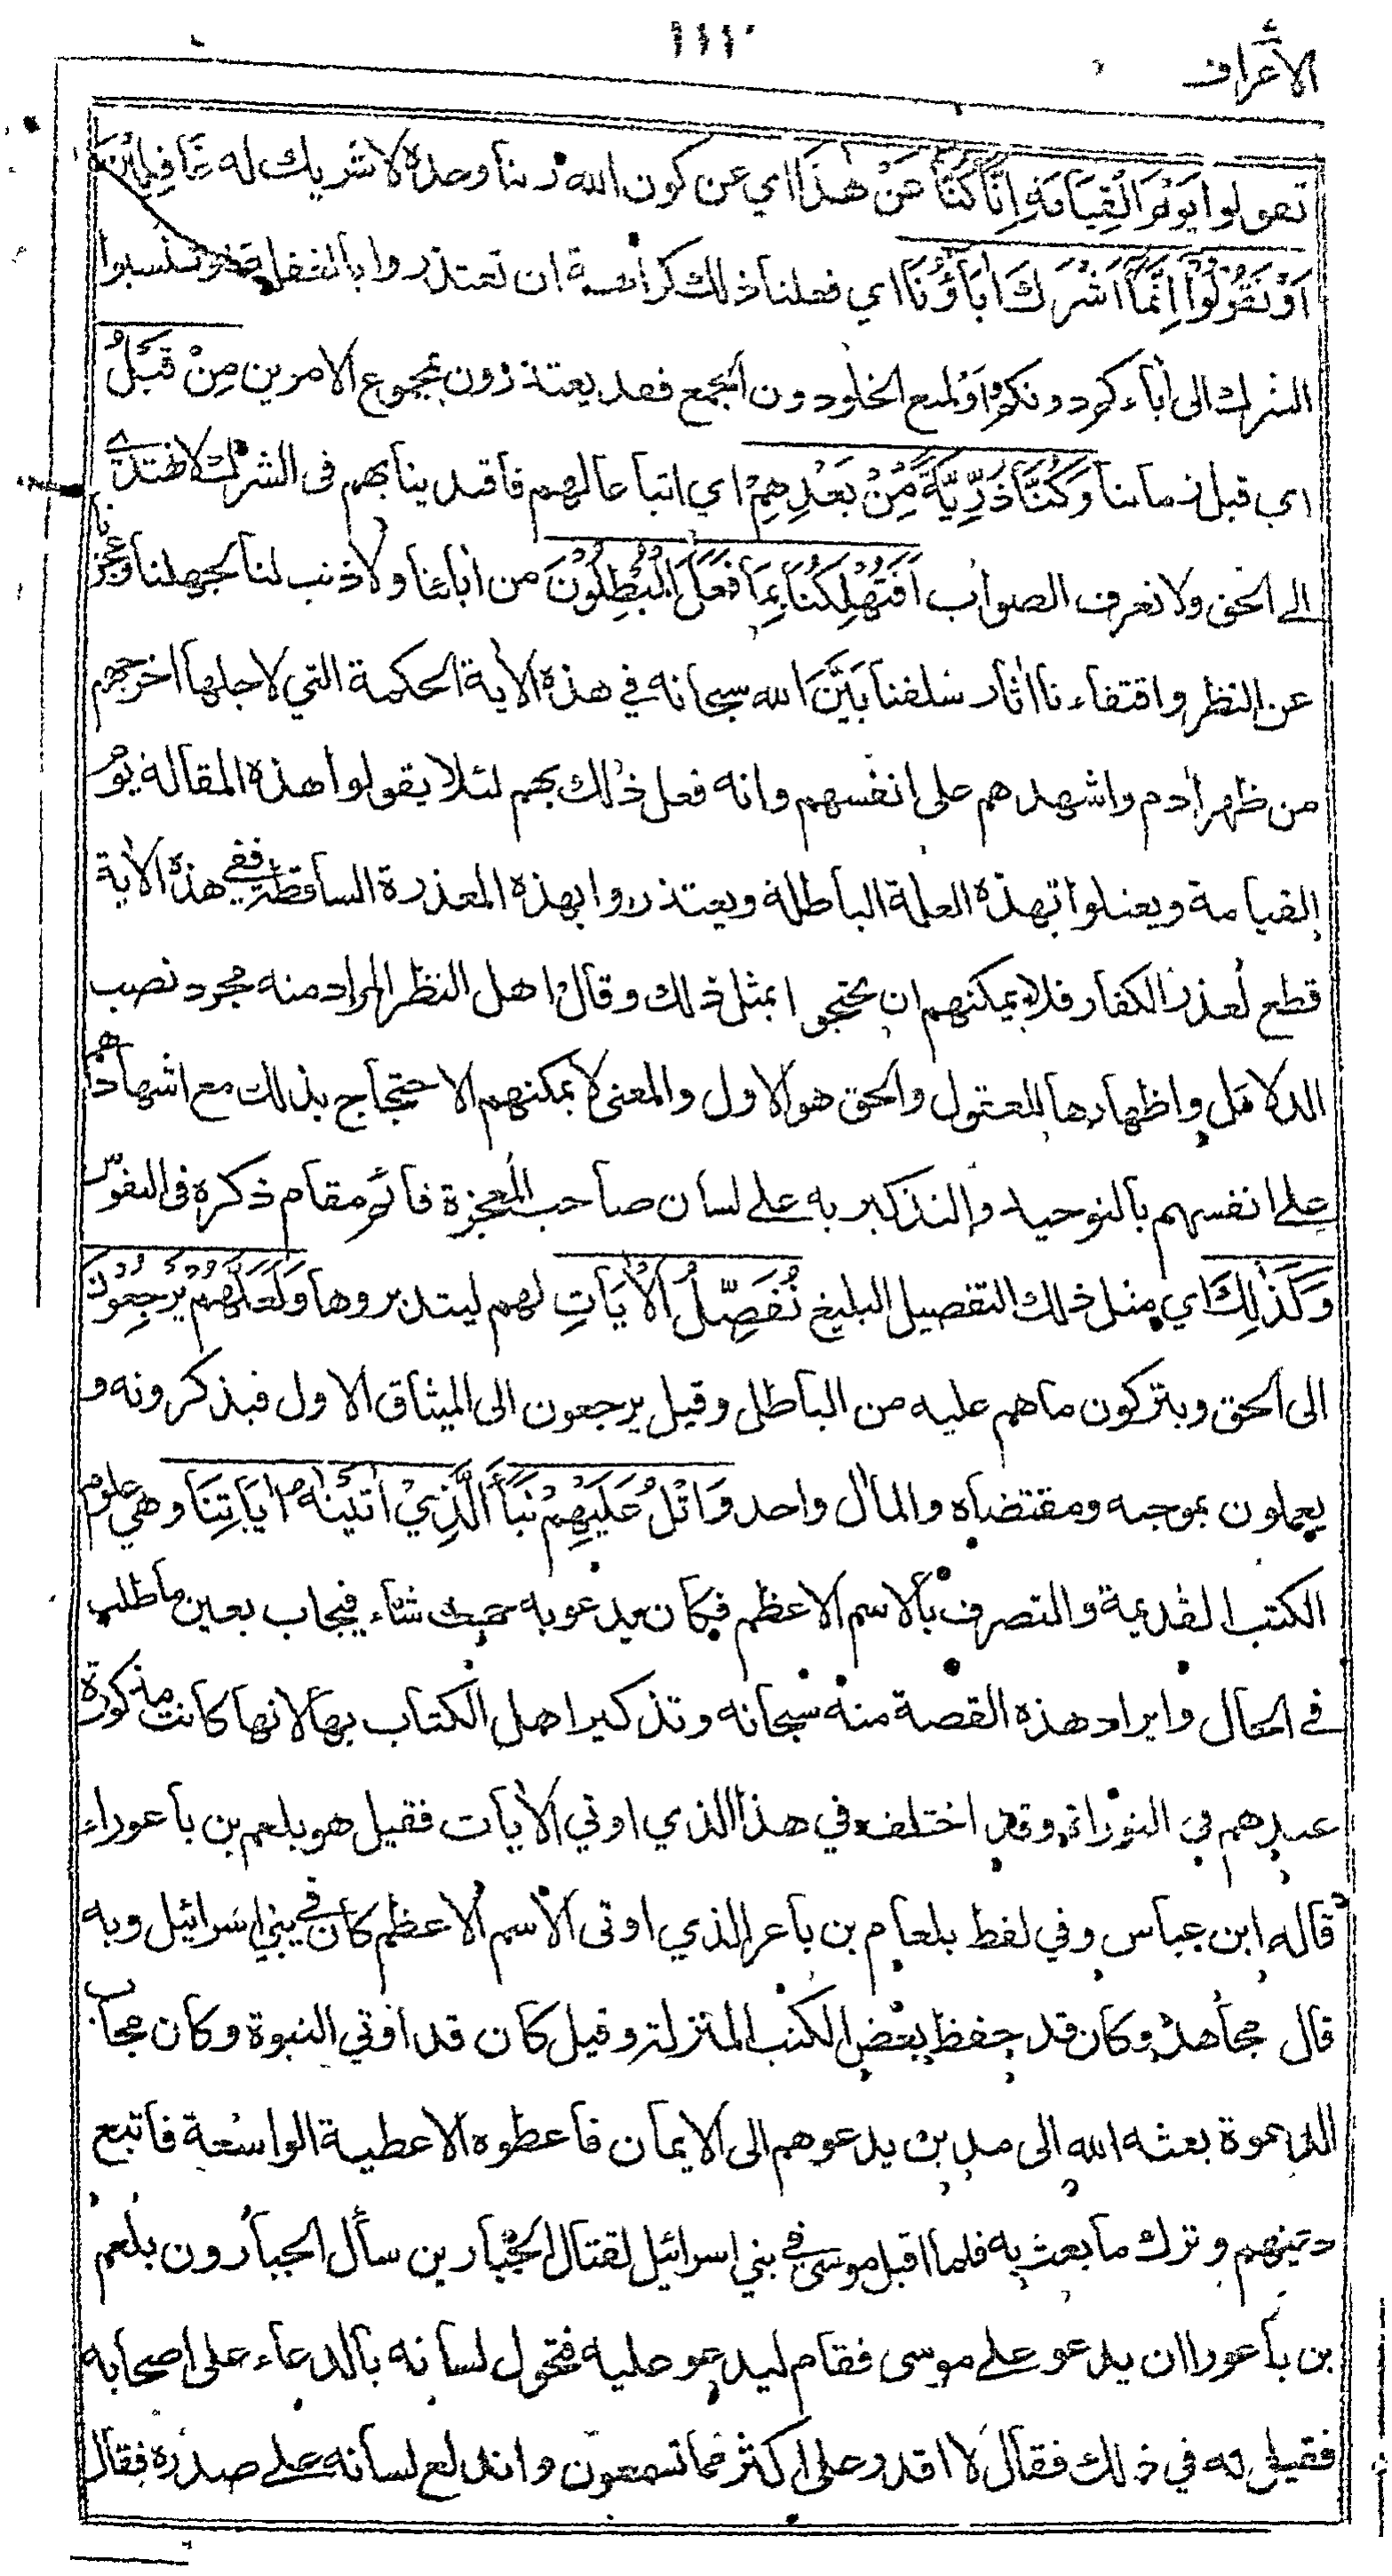 الأعراف
١١١
تقولوا يَوْمَ الْقِيَامَةِ اِنَّا كُنَّا عَنْ هٰذَا اي عن كون الله ربنا وحده لا شريك له غَافِلِيْنَ
اَوْ تَقُوْلُوْا اِنَّمَا اَشْرَكَ اٰبَاؤُنَا اي فعلنا ذلك كراهة ان تعتذروا بالغفلة او تنسبوا
الشرك الى اٰباءكم دونكم واو لمنع الخلو دون الجمع فقد يعتذرون بمجموع الامرين مِنْ قَبْلُ
اي قبل زماننا وَكُنَّا ذُرِّيَّةً مِّنْ بَعْدِهِمْ اي اتباعا لهم فاقتدينا بهم في الشرك لا نهتدي
الى الحق ولا نعرف الصواب اَفَتُهْلِكُنَا بِمَا فَعَلَ الْمُبْطِلُوْنَ من اٰبائنا ولا ذنب لنا لجهلنا وعجزنا
عن النظر واقتفاءنا اٰثار سلفنا بَيَّنَ الله سبحانه في هذه الاٰية الحكمة التي لاجلها اخرجهم
من ظهر اٰدم واشهدهم على انفسهم وانه فعل ذلك بهم لئلا يقولوا هذه المقالة يوم
القيامة ويعتلوا بهذه العلة الباطلة ويعتذروا بهذه المعذرة الساقطة ففي هذه الاٰية
قطع لعذر الكفار فلا يمكنهم ان يحتجوا بمثل ذلك وقال اهل النظر المراد منه مجرد نصب
الدلائل واظهارها للعقول والحق هو الاول والمعنى لا يمكنهم الاحتجاج بذلك مع اشهادهم
على انفسهم بالتوحيد والتذكير به على لسان صاحب المعجزة قائم مقام ذكره في النفوس
وَكَذٰلِكَ اي مثل ذلك التفصيل البليغ نُفَصِّلُ الْاٰيَاتِ لهم ليتدبروها وَلَعَلَّهُمْ يَرْجِعُوْنَ
الى الحق ويتركون ما هم عليه من الباطل وقيل يرجعون الى الميثاق الاول فيذكرونه و
يعملون بموجبه ومقتضاه والماٰل واحد وَاتْلُ عَلَيْهِمْ نَبَأَ الَّذِيْ اٰتَيْنٰهُ اٰيَاتِنَا وهي علوم
الكتب القديمة والتصرف بالاسم الاعظم فكان يدعو به حيث شاء فيجاب بعين ما طلب
في الحال وايراد هذه القصة منه سبحانه وتذكير اهل الكتاب بها لانها كانت مذكورة
عندهم في التوراة وقد اختلف في هذا الذي اوتي الاٰيات فقيل هو بلعم بن باعوراء
قاله ابن عباس وفي لفظ بلعام بن باعر الذي اوتى الاسم الاعظم كان في بني اسرائيل وبه
قال مجاهد وكان قد حفظ بعض الكتب المنزلة وقيل كان قد اوتي النبوة وكان مجاب
الدعوة بعثه الله الى مدين يدعوهم الى الايمان فاعطوه الاعطية الواسعة فاتبع
دينهم وترك ما بعث به فلما اقبل موسى في بني اسرائيل لقتال الجبارين سأل الجبارون بلعم
بن باعورا ان يدعو على موسى فقام ليدعو عليه فتحول لسانه بالدعاء على اصحابه
فقيل له في ذلك فقال لا اقدر على اكثر مما تسمعون واندلع لسانه على صدره فقال